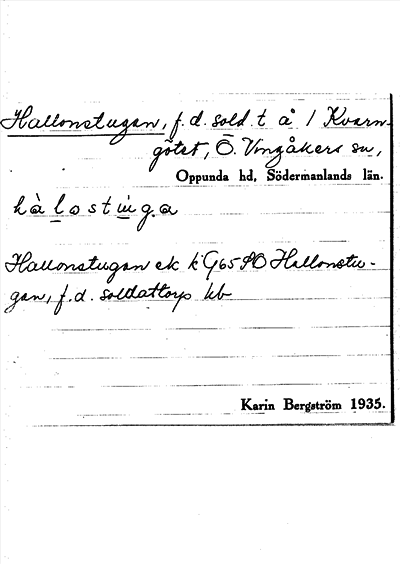 Hallonstugan, f.d. sold.t å 1 Kvarn-
götet, Ö. Vingåkers sn,
Oppunda hd, Södermanlands län.
hàlostúga
Hallonstugan ek k G65 SO Hallonstu-
gan, f.d. soldattorp kb
Karin Bergström 1935.